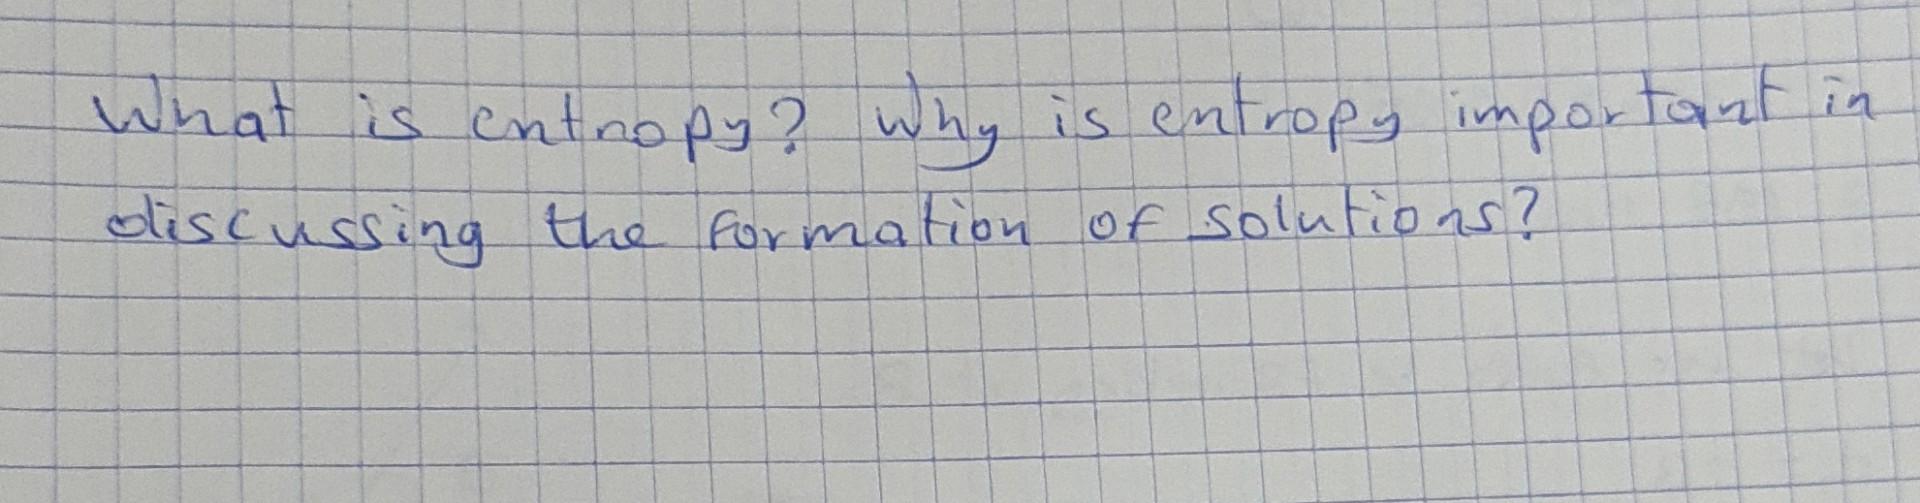 What is entropy? Why is entropy important in
discussing the formation of solutions?